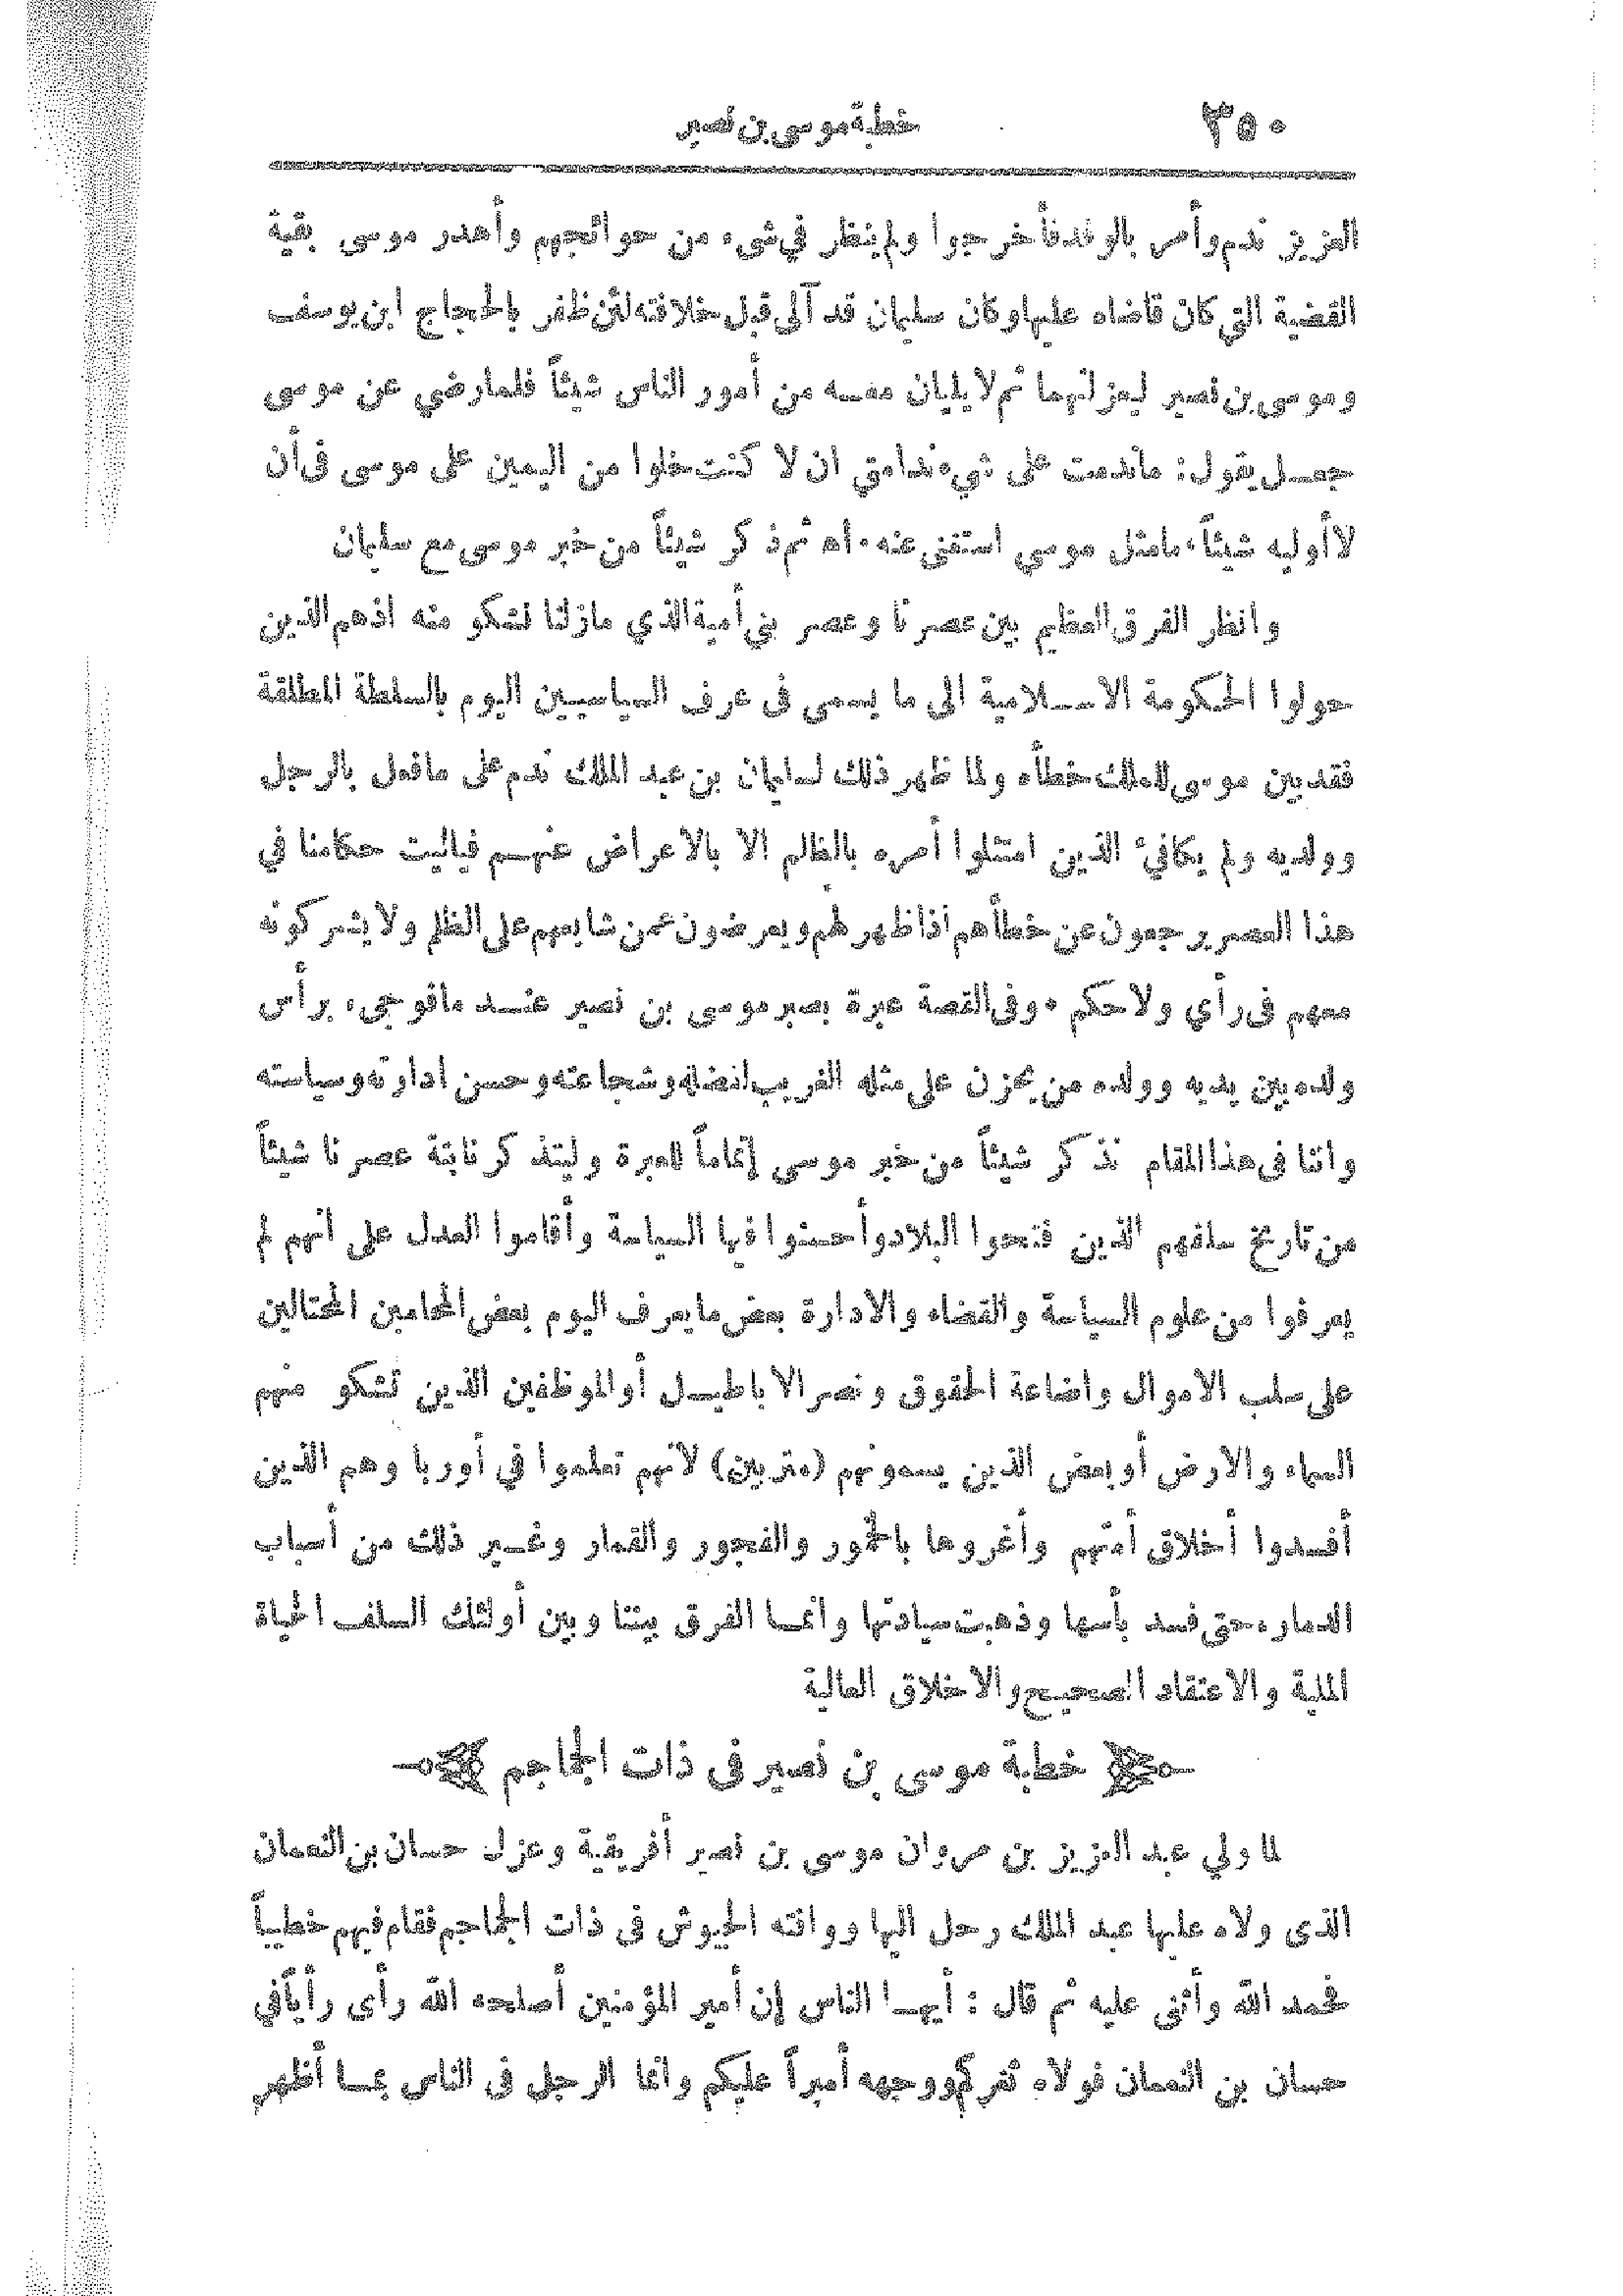 ٣٥٠
خطبة موسى بن نصير
العزيز ندم وأمر بالوفد فأخرجوا ولم ينظر في شيء من حوائجهم وأهدر موسى بقية
القضية التي كان قاضاه عليها وكان سليمان قد آلى قبل خلافته لئن ظفر بالحجاج ابن يوسف
وموسى بن نصير ليعزلنهما ثم لا يليان معه من أمور الناس شيئاً فلما رضي عن موسى
جعل يقول: ماندمت على شيء ندامتي ان لا كنت خلوا من اليمين على موسى في أن
لا أوليه شيئاً، مامثل موسى استغنى عنه. أه ثم ذكر شيئاً من خبر موسى مع سليمان
وانظر الفرق العظيم بين عصرنا وعصر بني أمية الذي مازلنا نشكو منه اذ هم الذين
حولوا الحكومة الاسلامية الى ما يسمى في عرف السياسيين اليوم بالسلطة المطلقة
فقد بين موسى للملك خطأه ولما ظهر ذلك لسليمان بن عبد الملك ندم على مافعل بالرجل
وولديه ولم يكافئ الذين امتثلوا أمره بالظلم الا بالاعراض عنهم فياليت حكامنا في
هذا العصر يرجعون عن خطأهم اذا ظهر لهم ويعرضون عمن شايعهم على الظلم ولا يشركونه
معهم في رأي ولا حكم ٠ وفي القصة عبرة بصبر موسى بن نصير عند مافوجيء برأس
ولده بين يديه وولده من يحزن على مثله الغريب لفضله وشجاعته وحسن ادارته وسياسته
واننا في هذا المقام نذكر شيئاً من خبر موسى إتماماً للعبرة وليتذكر نابتة عصرنا شيئاً
من تاريخ سلفهم الذين فتحوا البلاد وأحسنوا فيها السياسة وأقاموا العدل على أنهم لم
يعرفوا من علوم السياسة والقضاء والادارة بعض ما يعرف اليوم بعض المحامين المحتالين
على سلب الاموال واضاعة الحقوق ونصر الاباطيل أو الموظفين الذين تشكو منهم
السماء والارض أو بعض الذين يسمونهم (متربين) لأنهم تعلموا في أوربا وهم الذين
أفسدوا أخلاق أمتهم وأغروها بالخمور والفجور والقمار وغير ذلك من أسباب
الدمار، حتى فسد بأسها وذهبت سيادتها وانما الفرق بيننا وبين أولئك السلف الحياة
الملية والاعتقاد الصحيح والاخلاق العالية
خطبة موسى بن نصير في ذات الجماجم
لما ولي عبد العزيز بن مروان موسى بن نصير أفريقية وعزل حسان بن النعمان
الذى ولاه عليها عبد الملك رحل اليها ووافته الجيوش في ذات الجماجم فقام فيهم خطيباً
فحمد الله وأثنى عليه ثم قال : أيها الناس إن أمير المؤمنين أصلحه الله رأى رأياً في
حسان بن النعمان فولاه ثغركم ووجهه أميراً عليكم وانما الرجل في الناس بما أظهر